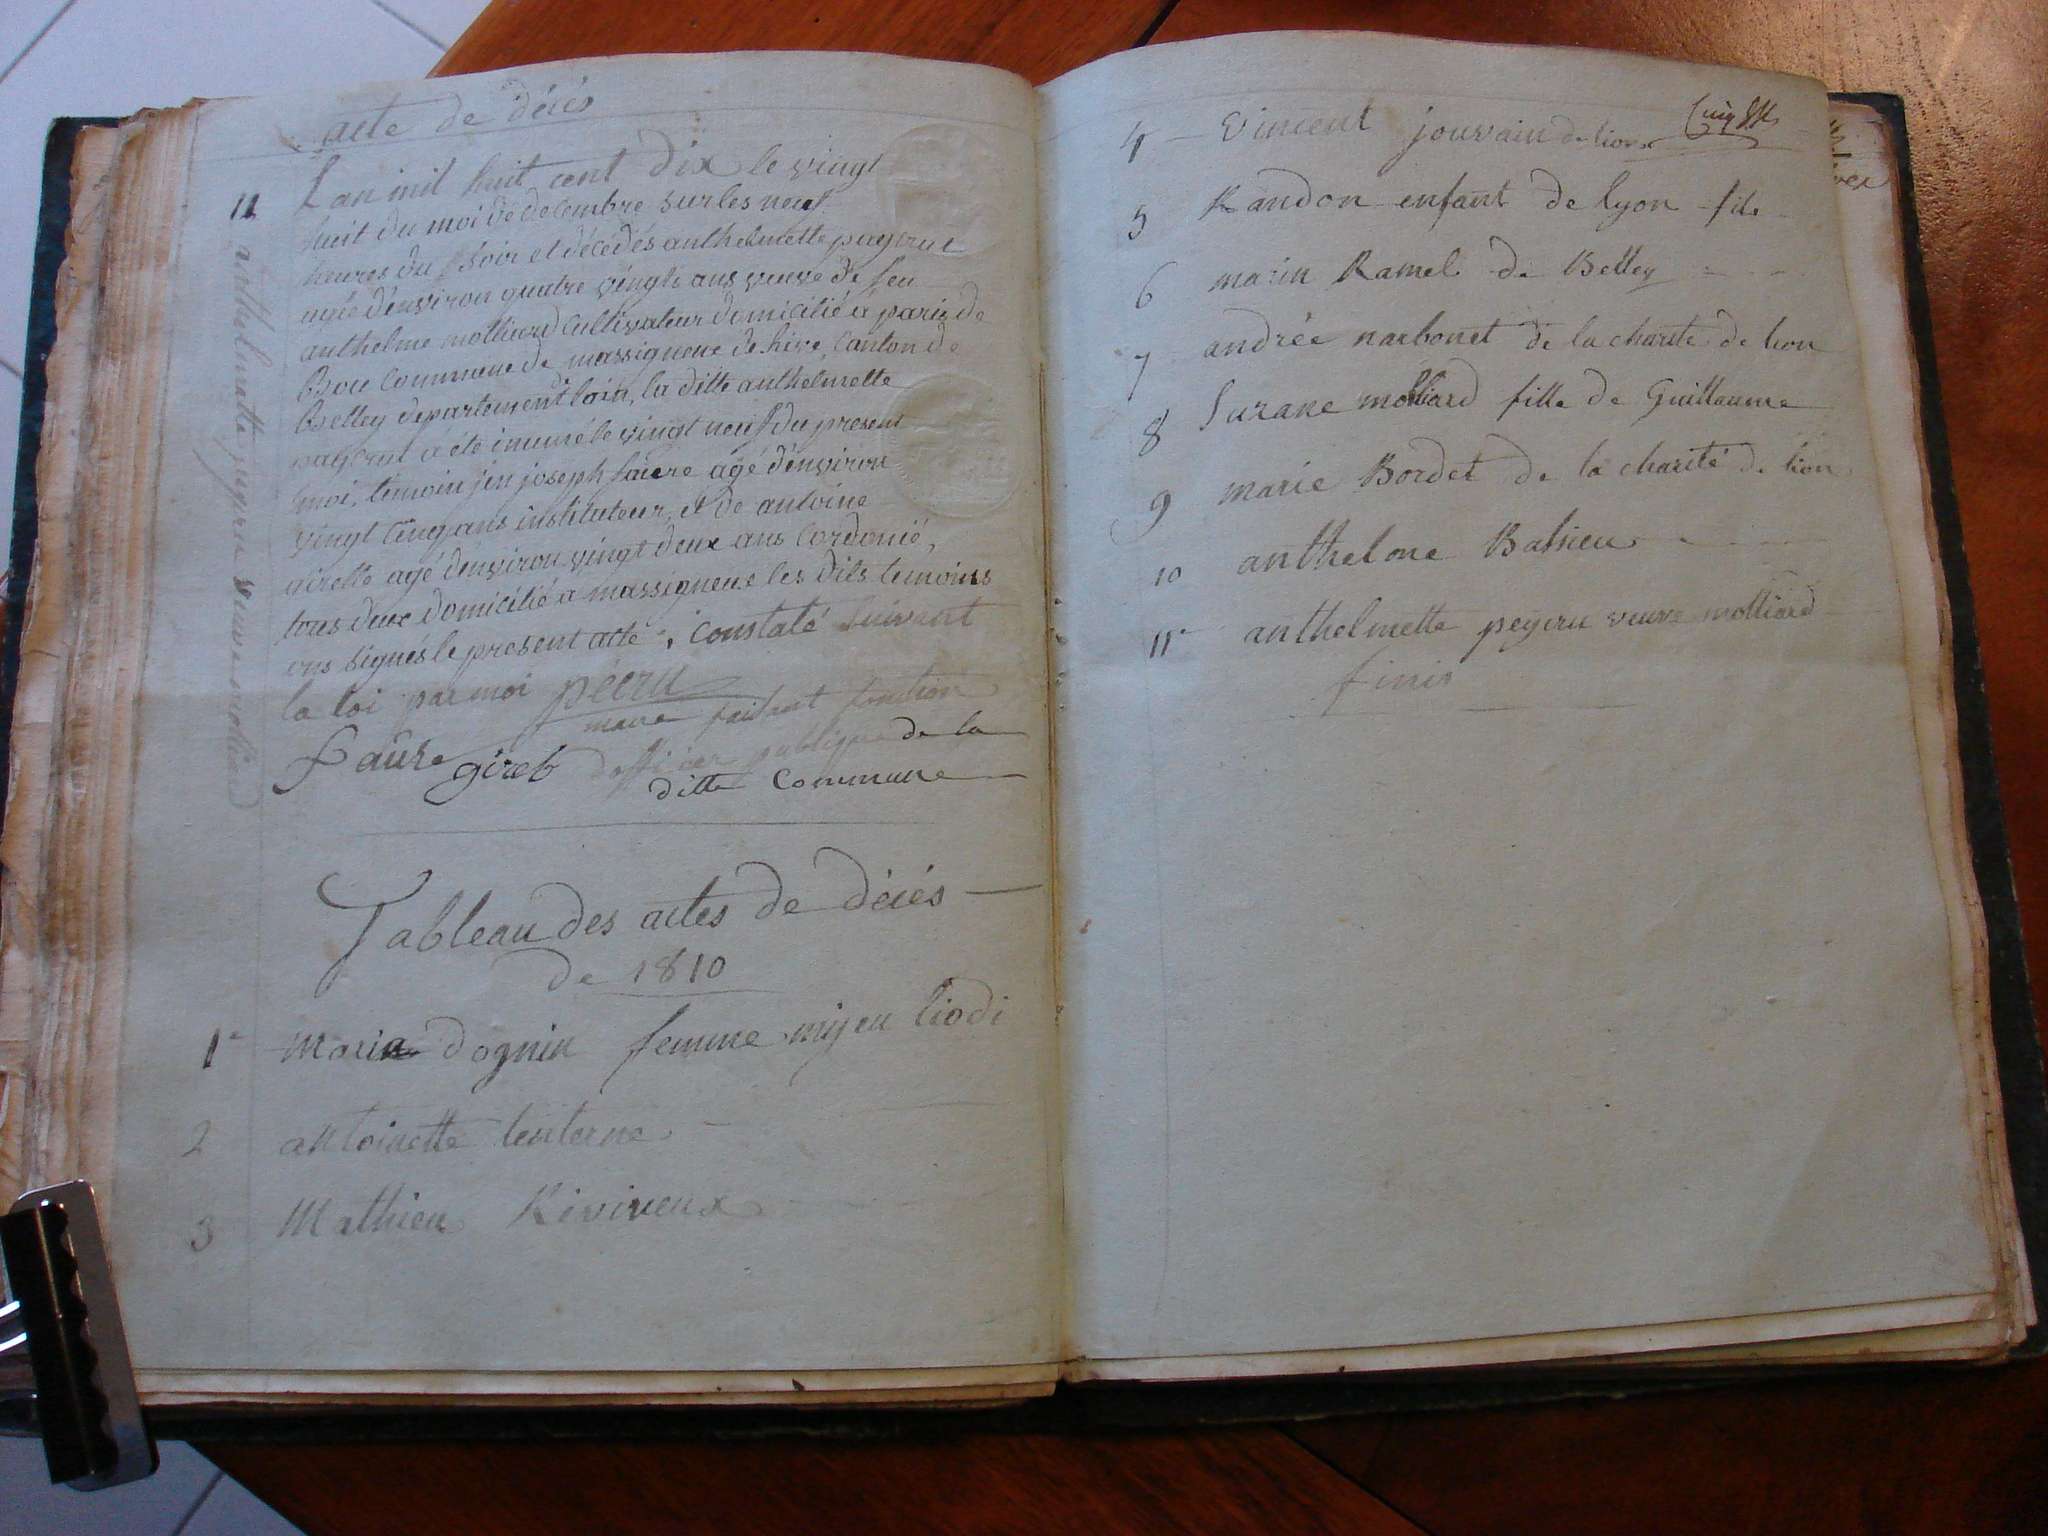 acte de décés
11
Lan mil huit cent dix le vingt
huit du moi de decembre sur les neuf
heures du soir et décédés anthelmette payerut
agée d'environ quatre vingts ans veuve de feu
anthelme molliard cultivateur domicilié a paris de
Bou Commune de massigneux de hive, Canton de
Belley departement lain, la ditte anthelmette
payerut a été inumé le vingt neuf du present
moi, temoin j'en joseph faiere agé d'environ
vingt cinq ans instituteur, et de antoine
girette agé d'environ vingt deux ans Cordonié,
tous deux domicilié a massigneux les dits temoins
ons signés le present acte, Constaté Suivant
la loi par moi pécru
maire faisant fonction
Faure gireb dofficier publique de la
ditte Commune
anthelmette peyeru veuve molliard
Tableau des actes de décés
de 1810
1 maria dognin femme mijeu liodi
2 antoinette lenterne
3 Mathieu Riviveux
4 Vincent jouvain de lion
5 Randon enfant de lyon file
6 marin Ramel de Belley
7 andrée narbonet de la charite de lion
8 Surane molliard fille de Guillaume
9 marie Bordet de la charité de lion
10 anthelme Batsieu
11 anthelmette peyeru veuve molliard
finis